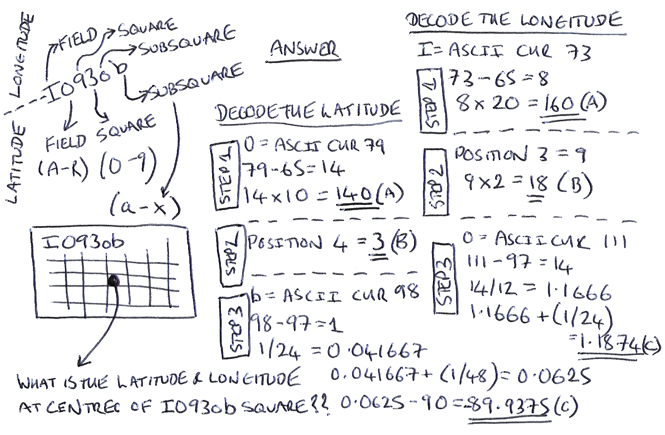 LONGITUDE
LATITUDE
FIELD
SQUARE
SUBSQUARE
IO93ob
SUBSQUARE
FIELD SQUARE
(A-R) (0-9)
(a-x)
IO93ob
WHAT IS THE LATITUDE & LONGITUDE
AT CENTRE OF IO93ob SQUARE??
ANSWER
DECODE THE LATITUDE
STEP 1
O = ASCII CHR 79
79-65=14
14x10=140(A)
STEP 2
POSITION 4 = 3(B)
STEP 3
b = ASCII CHR 98
98-97=1
1/24 = 0.041667
0.041667+(1/48)=0.0625
0.0625-90=-89.9375(C)
DECODE THE LONGITUDE
I = ASCII CHR 73
STEP 1
73-65=8
8x20=160(A)
STEP 2
POSITION 3 = 9
9x2=18(B)
STEP 3
o = ASCII CHR 111
111-97=14
14/12=1.1666
1.1666+(1/24)
=1.1874(C)